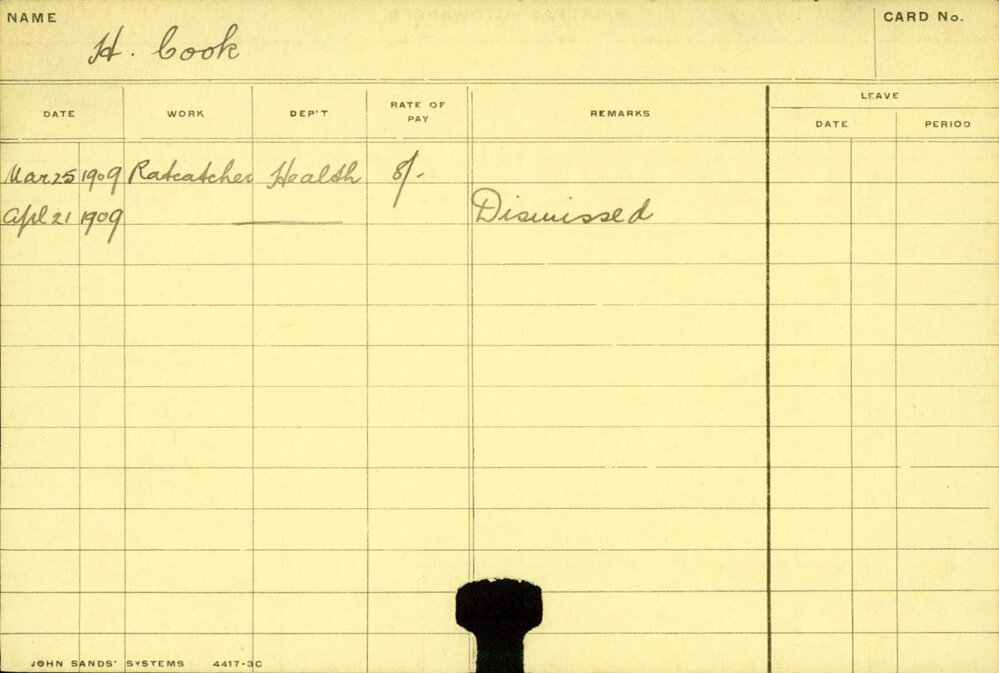 NAME
H. Cook
CARD No.
DATE WORK DEP'T RATE OF PAY REMARKS LEAVE
DATE PERIOD
Mar 25 1909 Ratcatcher Health 8/-
Apl 21 1909 Dismissed
JOHN SANDS' SYSTEMS 4417-3C